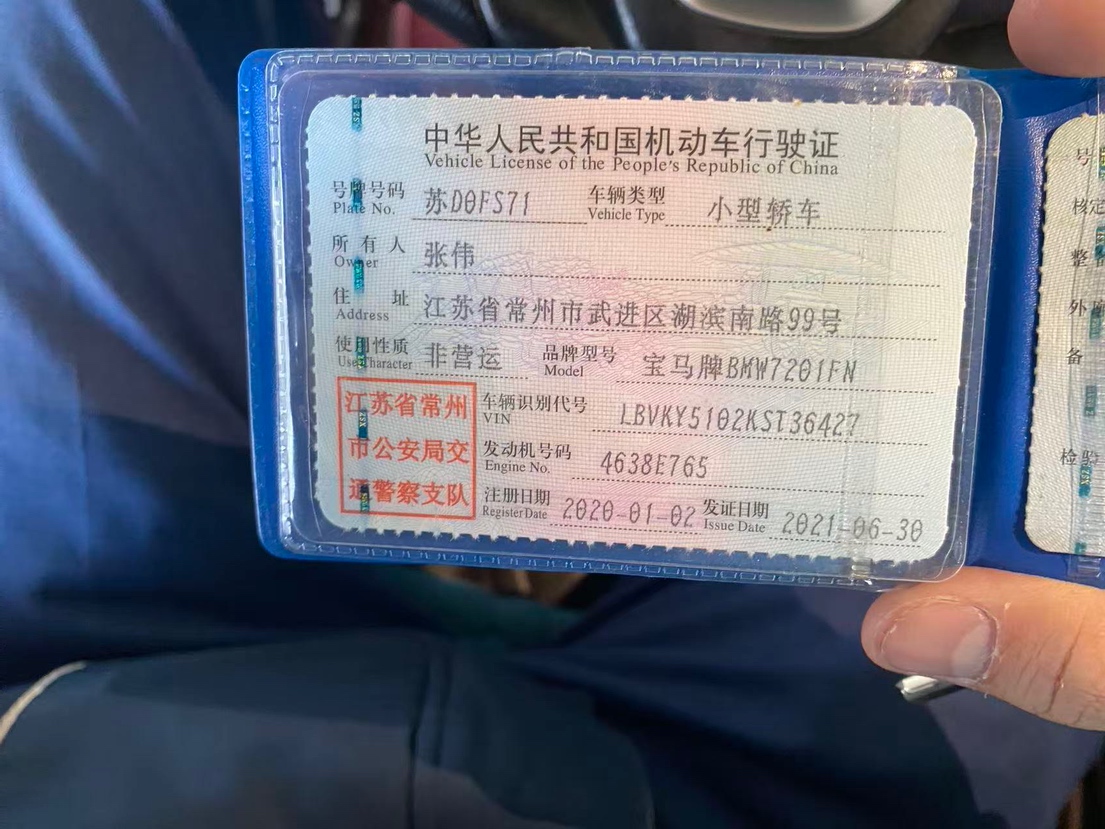 中华人民共和国机动车行驶证
Vehicle License of the People's Republic of China
号牌号码 苏D0FS71 车辆类型 小型轿车
Plate No. Vehicle Type
所有人 张伟
Owner
住址 江苏省常州市武进区湖滨南路99号
Address
使用性质 非营运 品牌型号 宝马牌BMW7201FN
Use Character Model
江苏省常州 车辆识别代号 LBVKY5102KST36427
VIN
市公安局交 发动机号码 4638E765
Engine No.
通警察支队 注册日期 2020-01-02 发证日期 2021-06-30
Register Date Issue Date
号
核定
整
外
备
检验